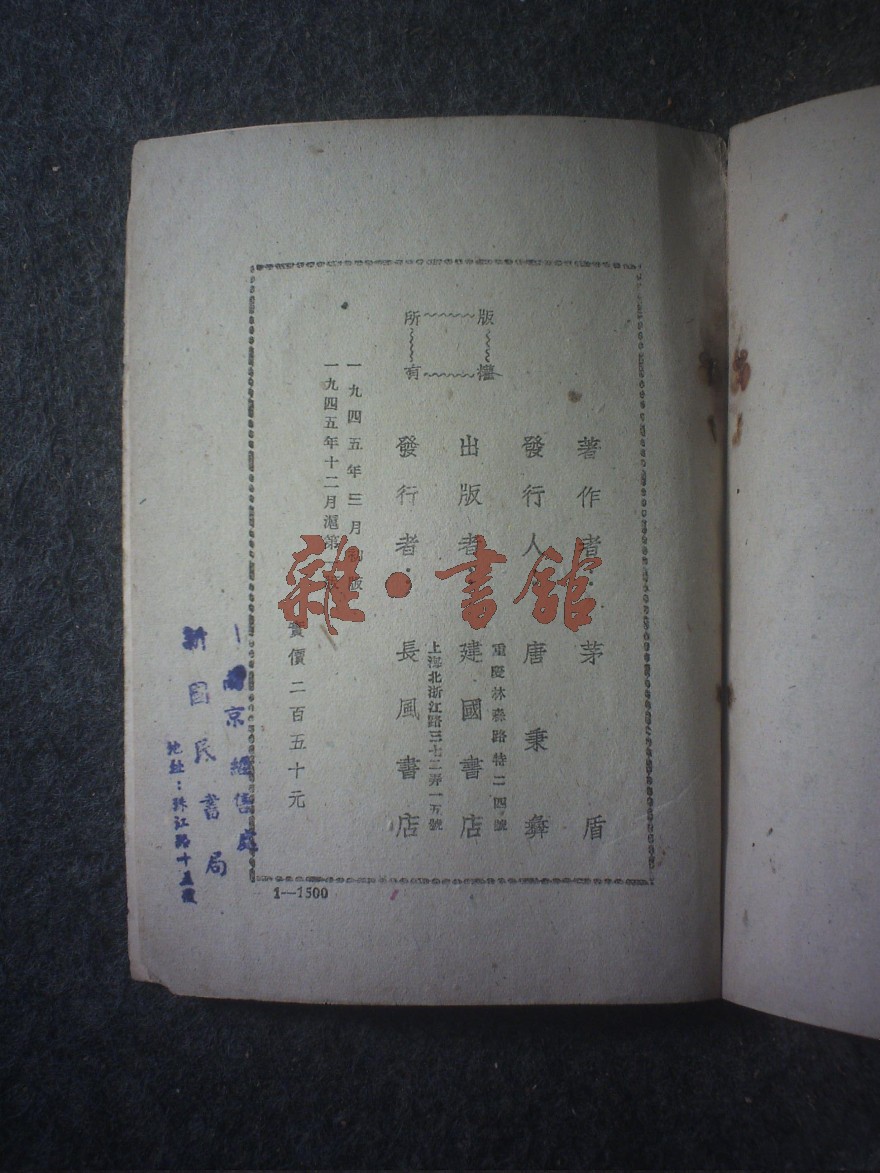 版權所有
著作者：茅盾
發行人：唐秉彝
重慶林森路特二四號
出版者：建國書店
上海北浙江路三七二弄一五號
發行者：長風書店
一九四五年三月初版
一九四五年十二月滬第一版
實價二百五十元
1—1500
南京經售處
新國民書局
地址：珠江路十五號
雜·書館